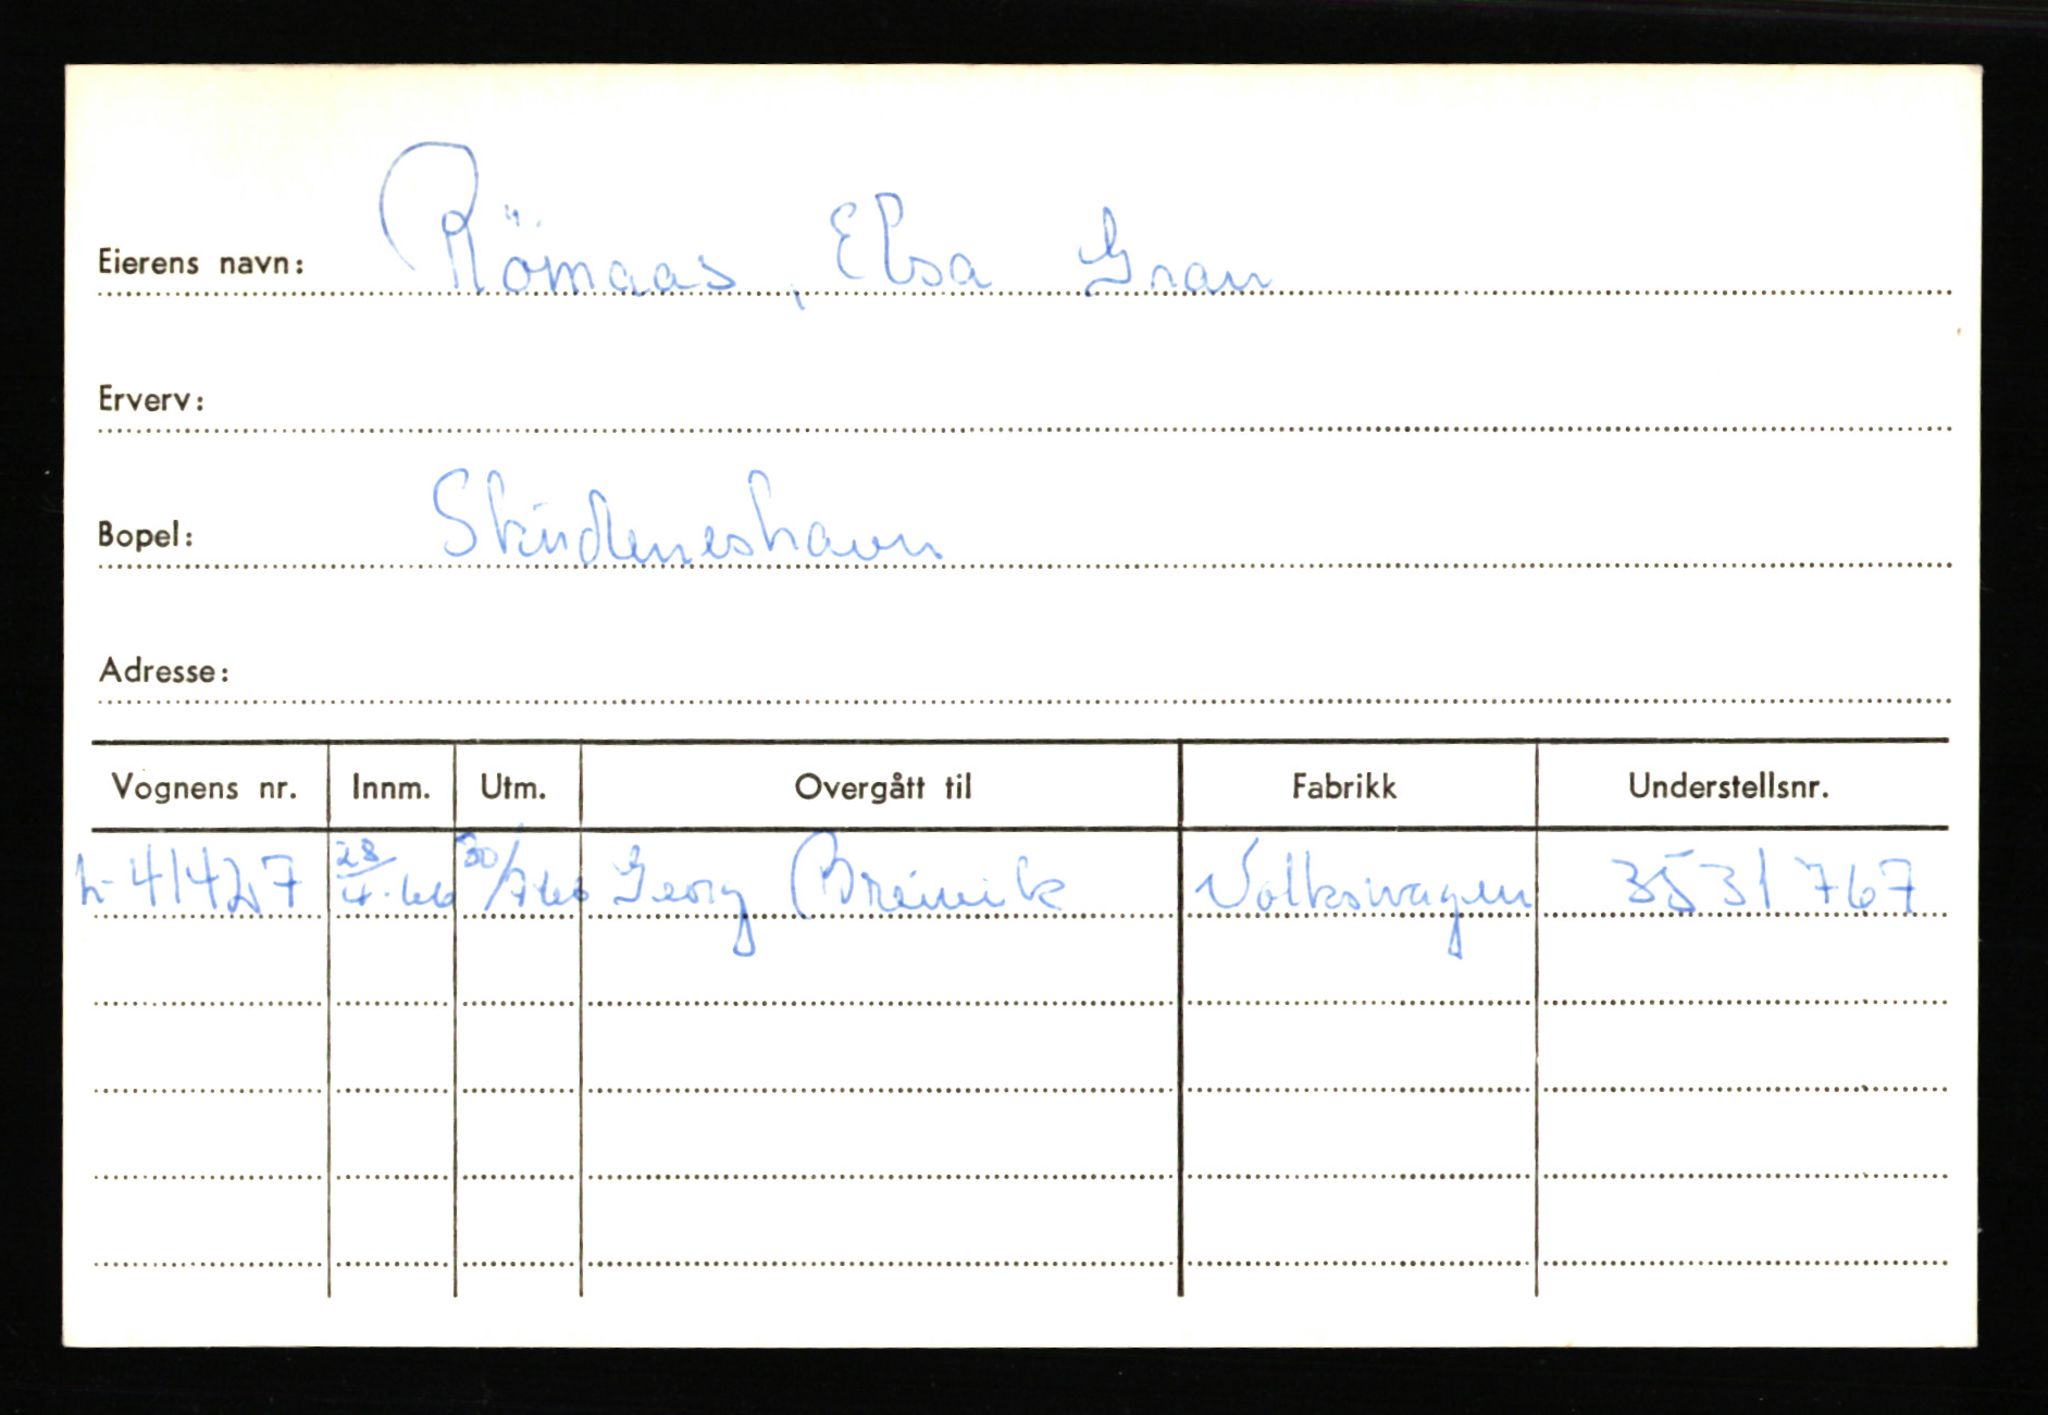 Eierens navn: Römaas, Elsa Gran
Erverv:
Bopel: Skudeneshavn
Adresse:
Vognens nr. Innm. Utm. Overgått til Fabrikk Understellsnr.
L-41427 28/4-66 30/7 66 Georg Breivik Volkswagen 3531767